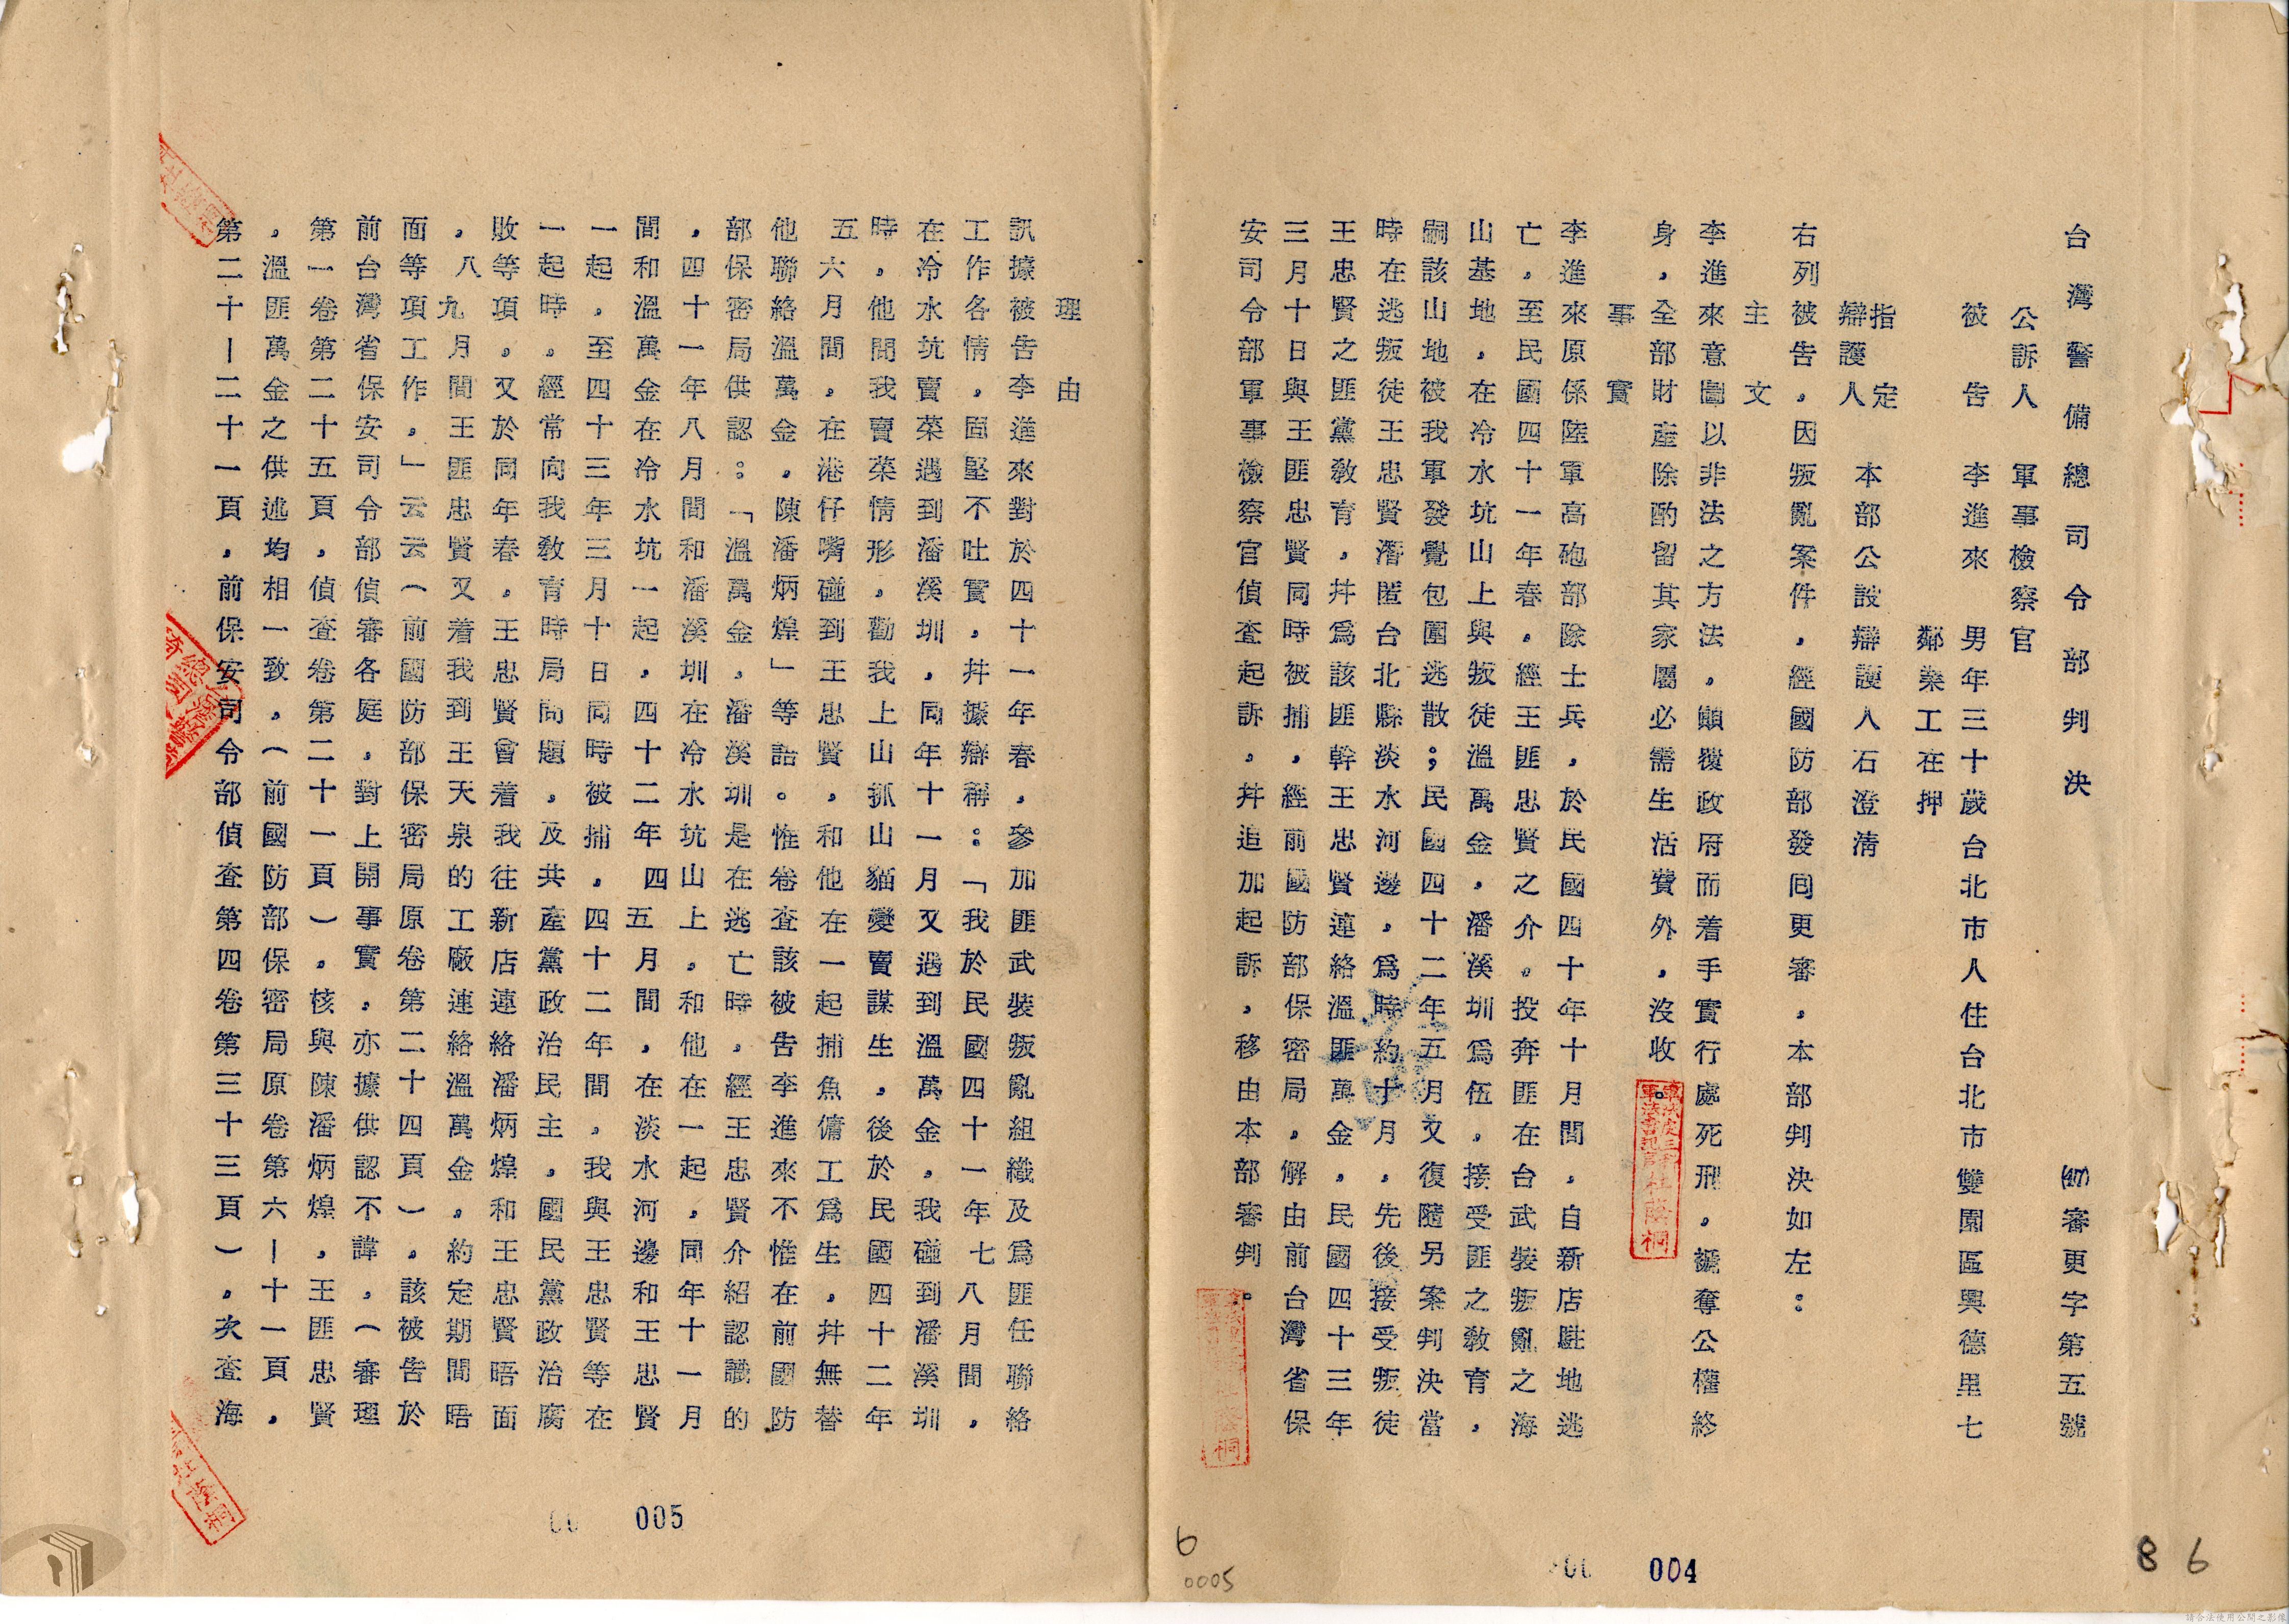 台灣警備總司令部判決 審更字第五號
公訴人 軍事檢察官
被告 李進來 男年三十歲台北市人住台北市雙園區興德里七
鄰業工在押
指定
辯護人 本部公設辯護人石澄清
右列被告。因叛亂案件,經國防部發囘更審,本部判決如左:
主文
李進來意圖以非法之方法。顚覆政府而着手實行處死刑。褫奪公權終
身,全部財產除酌留其家屬必需生活費外,沒收。
事實
李進來原係陸軍高砲部除士兵,於民國四十年十月間,自新店駐地逃
亡,至民國四十一年春。經王匪忠賢之介。投奔匪在台武裝叛亂之海
山基地,在冷水坑山上與叛徒溫萬金,潘溪圳爲伍。接受匪之敎育,
嗣該山地被我軍發覺包圍逃散;民國四十二年五月又復隨另案判決當
時在逃叛徒王忠賢潛匿台北縣淡水河邊,爲時約十月,先後接受叛徒
王忠賢之匪黨敎育。幷爲該匪幹王忠賢連絡溫匪萬金,民國四十三年
三月十日與王匪忠賢同時被捕,經前國防部保密局,解由前台灣省保
安司令部軍事檢察官偵查起訴。幷追加起訴,移由本部審判。
004
6
0005
8 6
理由
訊據被告李進來對於四十一年春,參加匪武裝叛亂組織及爲匪任聯絡
工作各情,固堅不吐實,幷據辯稱:「我於民國四十一年七八月間,
在冷水坑賣菜遇到潘溪圳,同年十一月又遇到溫萬金,我碰到潘溪圳
時。他問我賣菜情形,勸我上山抓山貓變賣謀生,後於民國四十二年
五六月間。在港仔嘴碰到王忠賢,和他在一起捕魚傭工爲生,幷無替
他聯絡溫萬金。陳潘炳煌」等語。惟卷查該被告李進來不惟在前國防
部保密局供認:「溫萬金,潘溪圳是在逃亡時,經王忠賢介紹認識的
,四十一年八月間和潘溪圳在冷水坑山上。和他在一起,同年十一月
間和溫萬金在冷水坑一起,四十二年四五月間,在淡水河邊和王忠賢
一起,至四十三年三月十日同時被捕。四十二年間。我與王忠賢等在
一起時。經常向我敎育時局問題,及共產黨政治民主,國民黨政治腐
敗等項。又於同年春。王忠賢曾着我往新店連絡潘炳煌。和王忠賢晤面
,八九月間王匪忠賢又着我到王天泉的工廠連絡溫萬金。約定期間晤
面等項工作。」云云(前國防部保密局原卷第二十四頁)。該被告於
前台灣省保安司令部偵審各庭,對上開事實,亦據供認不諱,(審理
第一卷第二十五頁,偵查卷第二十一頁)。核與陳潘炳煌,王匪忠賢
,溫匪萬金之供述均相一致。(前國防部保密局原卷第六—十一頁,
第二十—二十一頁,前保安司令部偵查第四卷第三十三頁)。次查海
005
請合法使用公開之影像